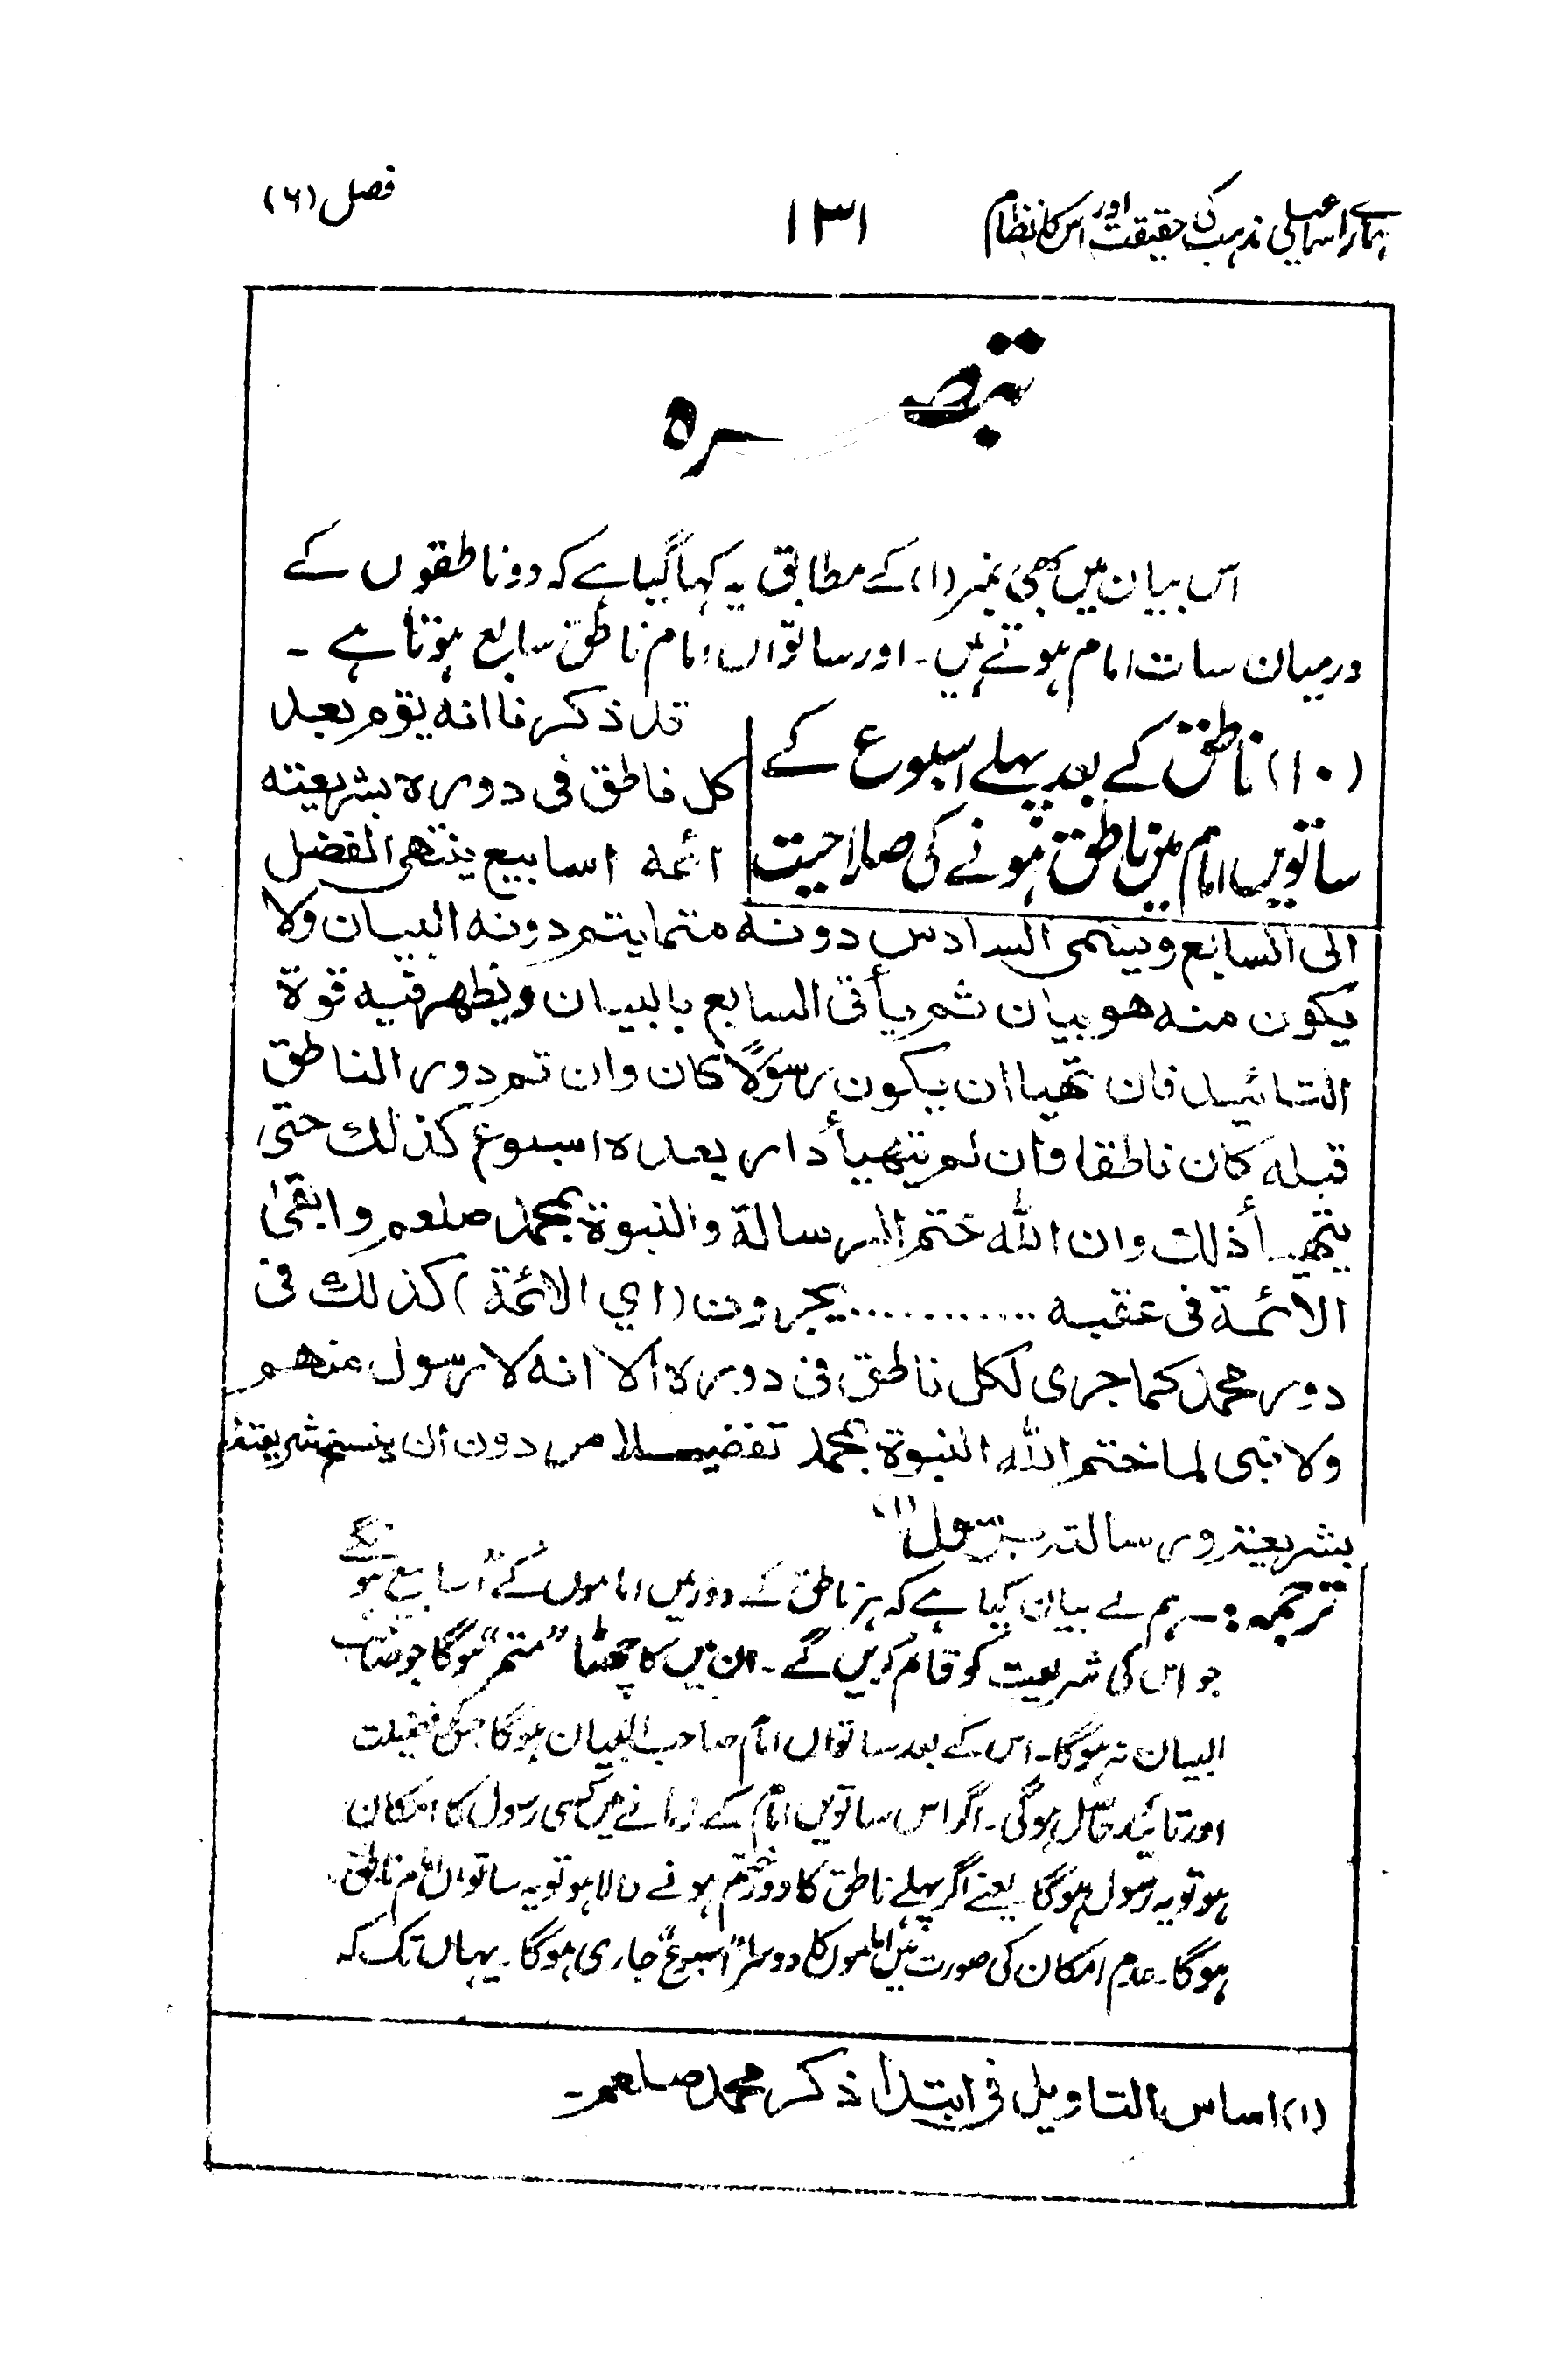 ہمارے اسماعیلی مذہب کی حقیقت اور اس کا نظام ۱۳۱ فصل (۶)
تبصرہ
اس بیان میں بھی نمبر (۱) کے مطابق یہ کہا گیا ہے کہ دو ناطقوں کے
درمیان سات امام ہوتے ہیں۔ اور ساتواں امام ناطق سابع ہوتا ہے ۔
(۱۰) ناطق کے بعد پہلے اسبوع کے
ساتویں امام میں ناطق ہونے کی صلاحیت
قد ذكرنا انه يقوم بعد
كل ناطق فى دوره بشريعته
ائمة اسابيع ينتهى الفضل
الى السابع ويسمى السادس دونه متما يتم دونه البيان ولا
يكون منه هو بيان ثم يأتى السابع بالبيان ويظهر فيه قوة
التائيد فان تهيا ان يكون رسولاً كان وان تم دور الناطق
قبله كان ناطقا فان لم يتهيأ دار بعده اسبوع كذلك حتى
يتهيأ ذلك وان الله ختم الرسالة والنبوة بمحمد صلعم وابقىٰ
الائمة فى عقبه ............ يجرون (اي الائمة) كذلك فى
دور محمد كما جرى لكل ناطق فى دوره الا انه لا رسول منهم
ولا نبى لما ختم الله النبوة بمحمد تفضيلا من دون ان ينسخ شريعته
بشريعة ورسالته برسول (۱)
ترجمہ :۔ ہم نے بیان کیا ہے کہ ہر ناطق کے دور میں اماموں کے "اسابیع" ہونگے
جو اس کی شریعت کو قائم کریں گے۔ ان میں کا چھٹا "متم" ہوگا جو صاحب
البیان نہ ہوگا۔ اس کے بعد ساتواں امام صاحب البیان ہوگا جس کی فضیلت
اور تائید حاصل ہوگی۔ اگر اس ساتویں امام کے زمانے میں کسی رسول کا امکان
ہو تو یہ رسول ہوگا یعنے اگر پہلے ناطق کا دور ختم ہونے والا ہو تو یہ ساتواں امام ناطق
ہوگا۔ عدم امکان کی صورت میں اماموں کا دوسرا "اسبوع" جاری ہوگا۔ یہاں تک کہ
(۱) اساس التاویل فی ابتدا ذکر محمد صلعم۔